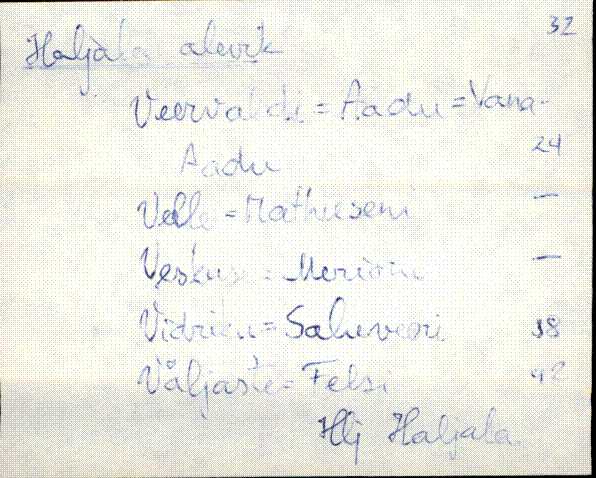 32
Haljala alevik
Veervaldi = Aadu = Vana-
Aadu 24
Velle = Mathieseni —
Veskuse = Merionu —
Vidriku = Saluveeri 38
Väljaste = Felsi 42
Hlj Haljala